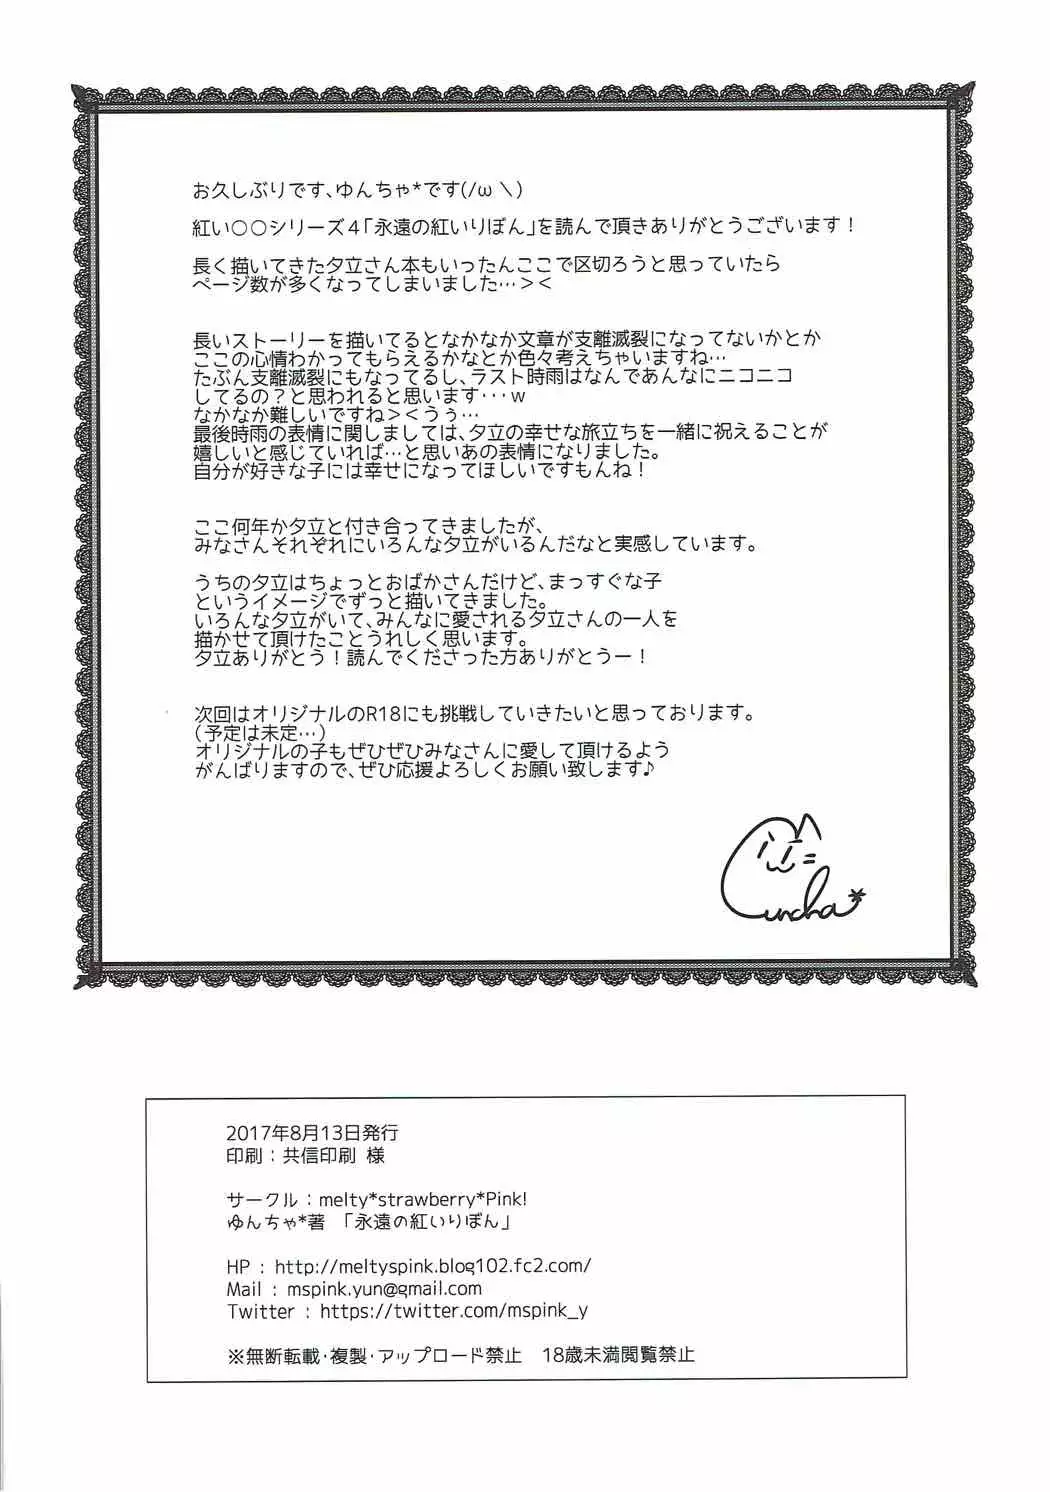 お久しぶりです、ゆんちゃ*です(/ω＼)
紅い○○シリーズ4「永遠の紅いりぼん」を読んで頂きありがとうございます！
長く描いてきた夕立さん本もいったんここで区切ろうと思っていたら
ページ数が多くなってしまいました…＞＜
長いストーリーを描いてるとなかなか文章が支離滅裂になってないかとか
ここの心情わかってもらえるかなとか色々考えちゃいますね…
たぶん支離滅裂にもなってるし、ラスト時雨はなんであんなにニコニコ
してるの？と思われると思います・・・w
なかなか難しいですね＞＜うぅ…
最後時雨の表情に関しましては、夕立の幸せな旅立ちを一緒に祝えることが
嬉しいと感じていれば…と思いあの表情になりました。
自分が好きな子には幸せになってほしいですもんね！
ここ何年か夕立と付き合ってきましたが、
みなさんそれぞれにいろんな夕立がいるんだなと実感しています。
うちの夕立はちょっとおばかさんだけど、まっすぐな子
というイメージでずっと描いてきました。
いろんな夕立がいて、みんなに愛される夕立さんの一人を
描かせて頂けたことうれしく思います。
夕立ありがとう！読んでくださった方ありがとうー！
次回はオリジナルのR18にも挑戦していきたいと思っております。
(予定は未定…)
オリジナルの子もぜひぜひみなさんに愛して頂けるよう
がんばりますので、ぜひ応援よろしくお願い致します♪
Yuncha*
2017年8月13日発行
印刷：共信印刷 様
サークル：melty*strawberry*Pink!
ゆんちゃ*著 「永遠の紅いりぼん」
HP : http://meltyspink.blog102.fc2.com/
Mail : mspink.yun@gmail.com
Twitter : https://twitter.com/mspink_y
※無断転載・複製・アップロード禁止 18歳未満閲覧禁止